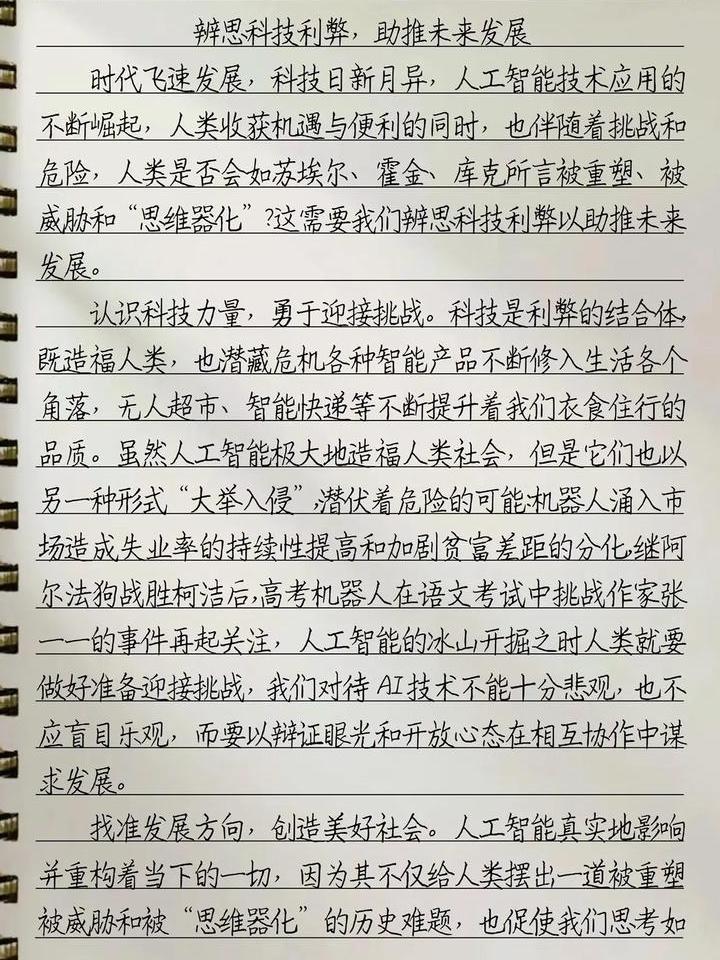 辨思科技利弊，助推未来发展
时代飞速发展，科技日新月异，人工智能技术应用的
不断崛起，人类收获机遇与便利的同时，也伴随着挑战和
危险，人类是否会如苏埃尔、霍金、库克所言被重塑、被
威胁和“思维器化”?这需要我们辨思科技利弊以助推未来
发展。
认识科技力量，勇于迎接挑战。科技是利弊的结合体，
既造福人类，也潜藏危机各种智能产品不断修入生活各个
角落，无人超市、智能快递等不断提升着我们衣食住行的
品质。虽然人工智能极大地造福人类社会，但是它们也以
另一种形式“大举入侵”，潜伏着危险的可能：机器人涌入市
场造成失业率的持续性提高和加剧贫富差距的分化，继阿
尔法狗战胜柯洁后，高考机器人在语文考试中挑战作家张
一一的事件再起关注，人工智能的冰山开掘之时人类就要
做好准备迎接挑战，我们对待AI技术不能十分悲观，也不
应盲目乐观，而要以辩证眼光和开放心态在相互协作中谋
求发展。
找准发展方向，创造美好社会。人工智能真实地影响
并重构着当下的一切，因为其不仅给人类摆出一道被重塑
被威胁和被“思维器化”的历史难题，也促使我们思考如